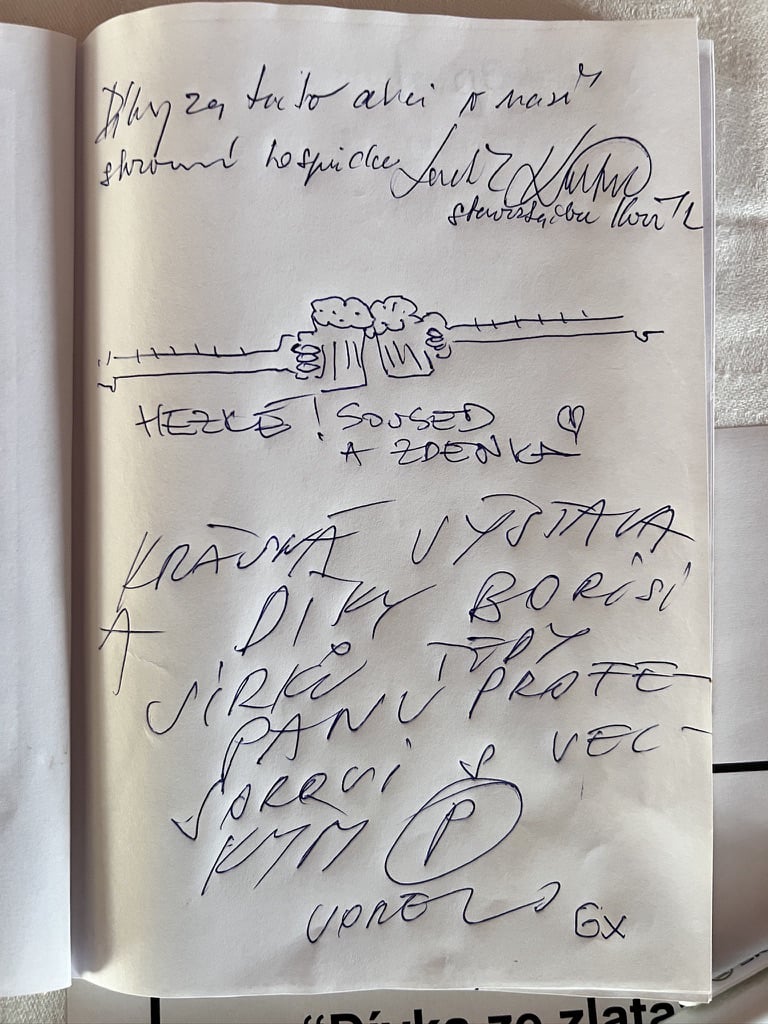 Díky za tuto akci v naší
skromné hospůdce
starostka
HEZKÉ! SOUSED
A ZDENKA
KRÁSNÁ VÝSTAVA
A DÍKY BORISI
JÍRKŮ TEDY
PANU PROFE-
SOROVI VEL-
KÝM P
VOREL 6x
"Dívka ze zlata